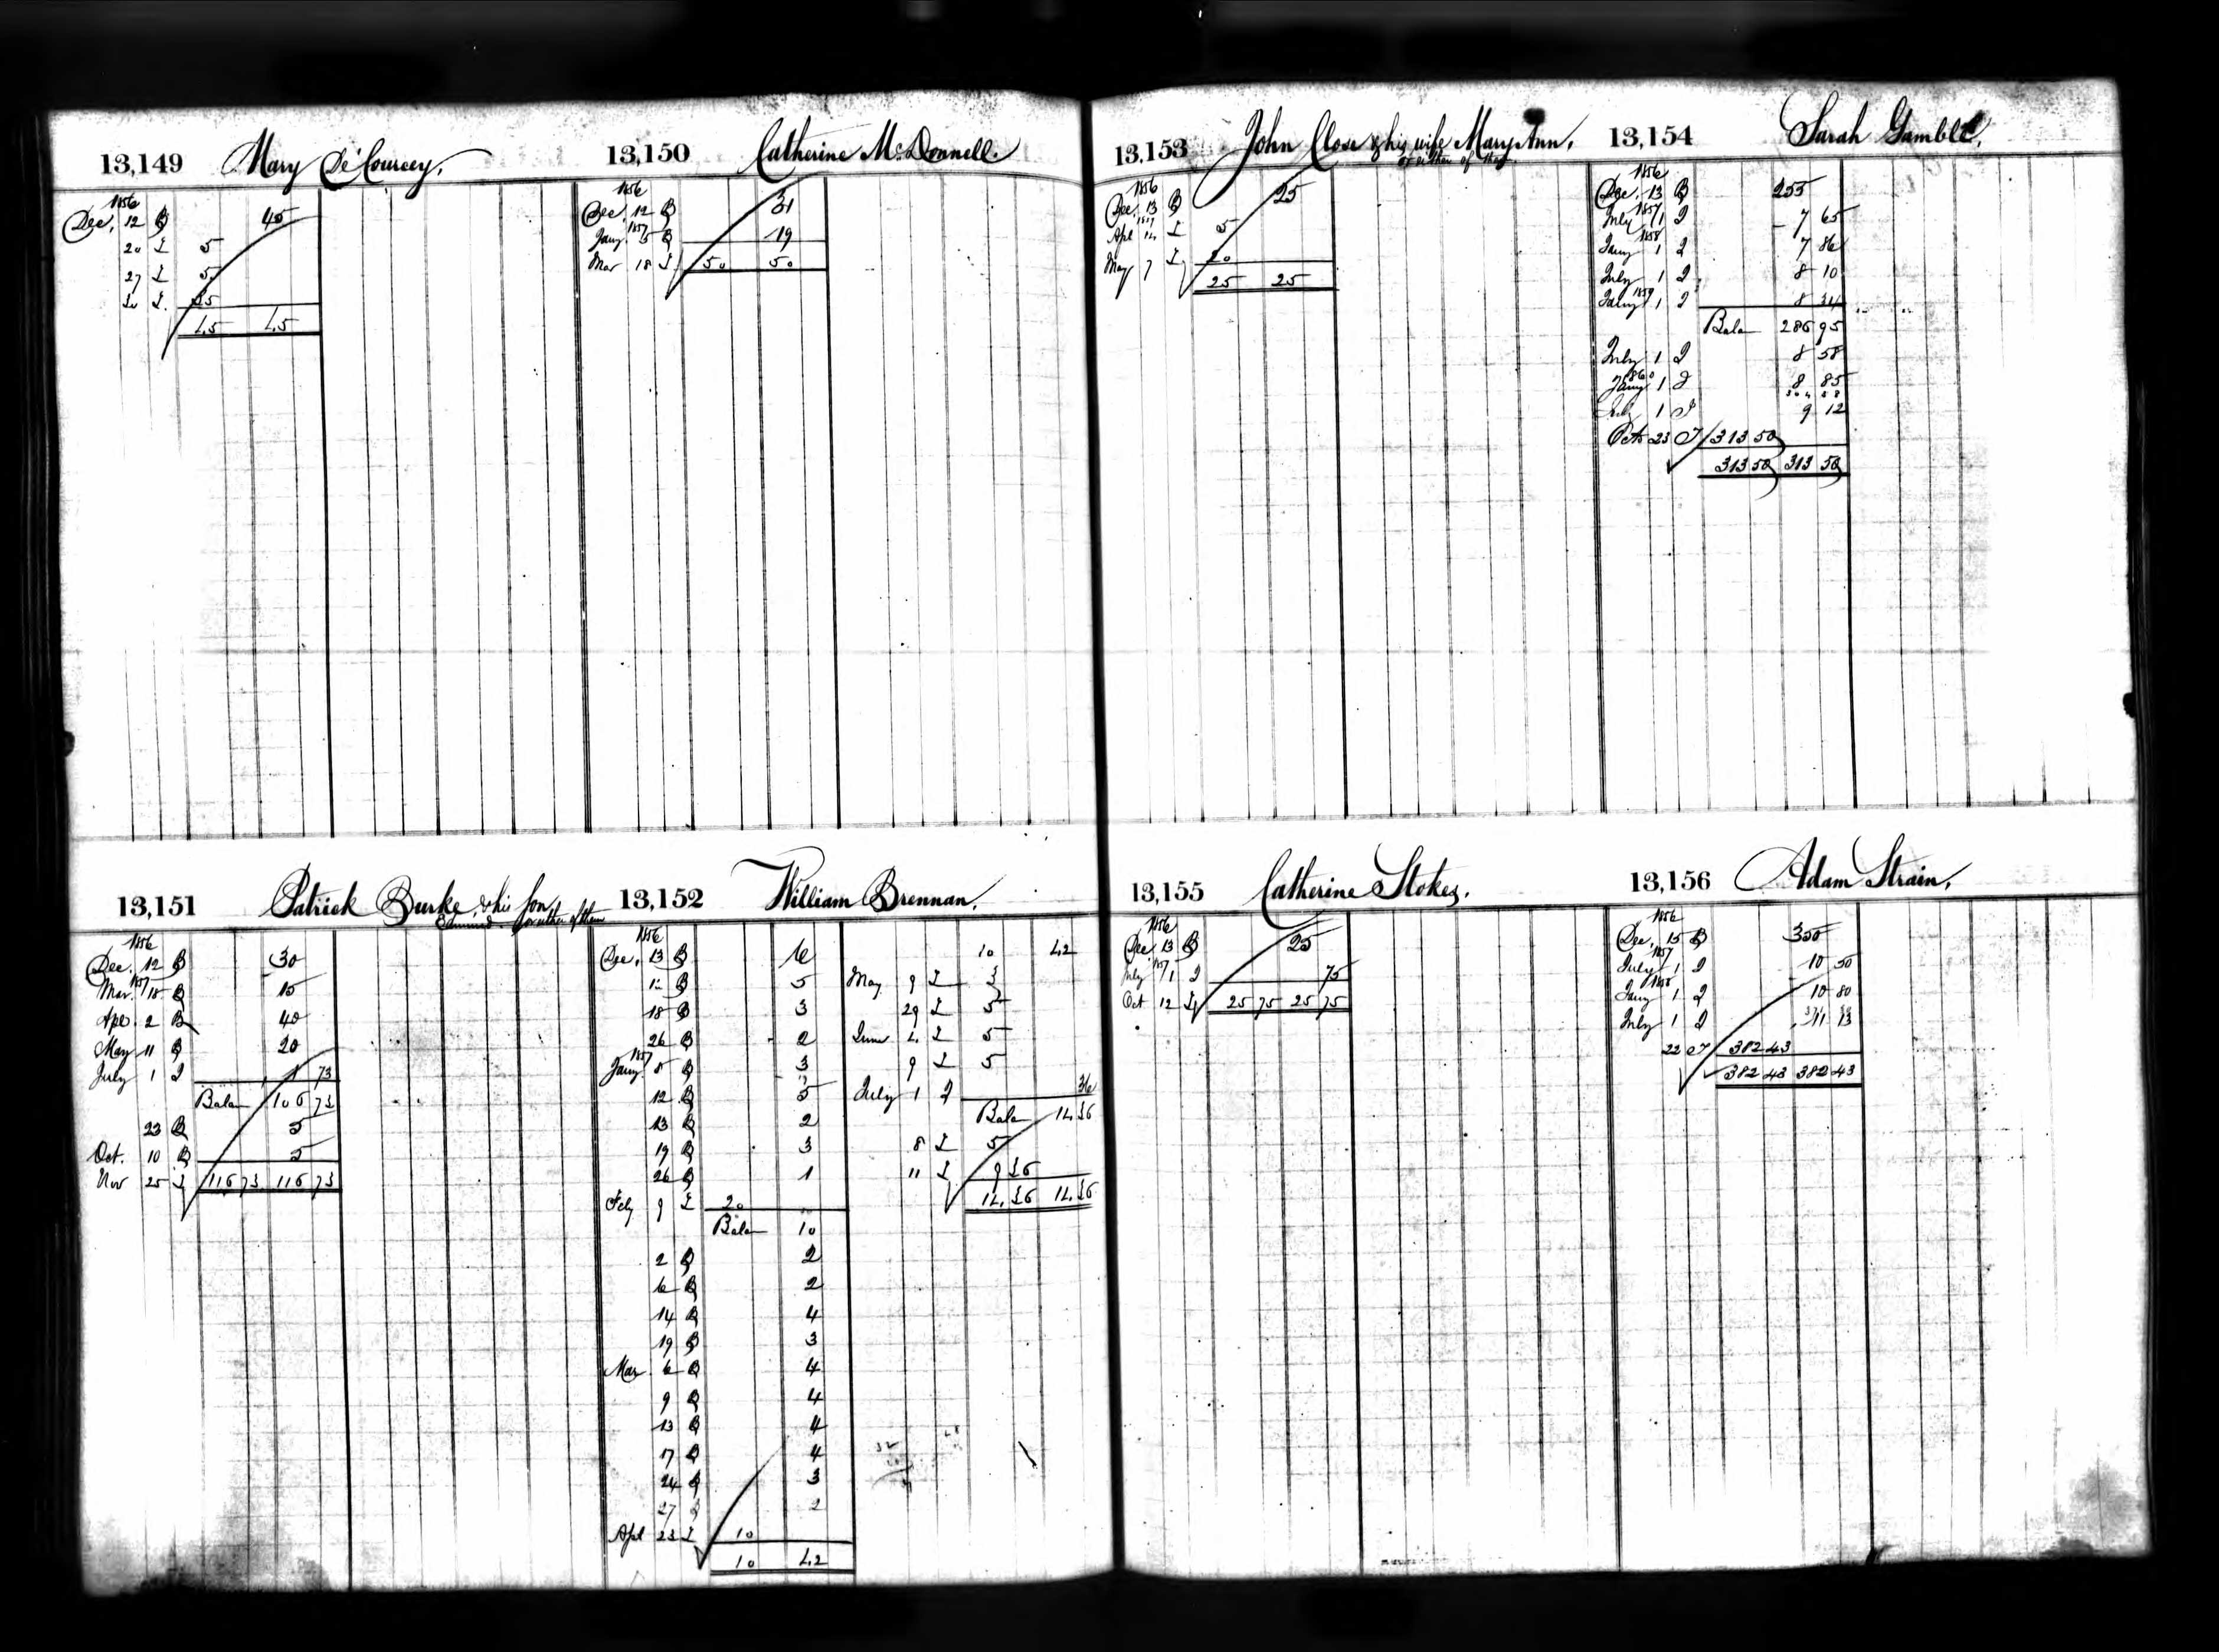 13,149 Mary De'Courcey.
1856
Dec, 12 B 45
20 L 5
27 L 5
30 L. 35
45 45
13,150 Catherine McDonnell.
1856
Dec, 12 B 31
1857
Jany. 5 B 19
Mar 18 L 50 50
13,151 Patrick Burke, & his Son
Edmund or either of them
1856
Dec. 12 B 30
1857
Mar. 18 B 15
Apr. 2 B 40
May 11 B 20
July 1 I 1 73
Balan 106 73
23 B 5
Oct. 10 B 5
Nov 25 L 116 73 116 73
13,152 William Brennan.
1856
Dec, 13 B 6
B 5
18 B 3
26 B 2
1857
Jany 5 B 3
12 B 5
13 B 2
19 B 3
26 B 1
Feby 9 L 20
Balan 10
2 B 2
6 B 2
14 B 4
19 B 3
Mar 6 B 4
9 B 4
13 B 4
17 B 4
24 B 3
27 B 2
Apl 23 L 10
10 42
10 42
May 9 L 3
29 L 5
June 4. L 5
9 L 5
July 1 I 36
Balan 14.36
8 L 5
11 L 9 36
14.36 14.36
13,153 John Close & his wife Mary Ann,
or either of them
1856
Dec, 13 B 25
1857
Apl 14 L 5
May 7 L 20
25 25
13,154 Sarah Gamble,
1856
Dec, 13 B 255
1857
July 1 I 7 65
1858
Jany 1 I 7 86
July 1 I 8 10
1859
Jany 1 I 8 34
Balan 286 95
July 1 I 8 58
1860
Jany 1 I 8 85
304 38
July 1 I 9 12
Octr 23 T 313 50
313 50 313 50
13,155 Catherine Stokes.
1856
Dec 13 B 25
1857
July 1 I 75
Oct 12 L 25 75 25 75
13,156 Adam Strain,
1856
Dec, 15 B 350
1857
July 1 I 10 50
1858
Jany 1 I 10 80
July 1 I 11 13
22 T 382 43
382 43 382 43